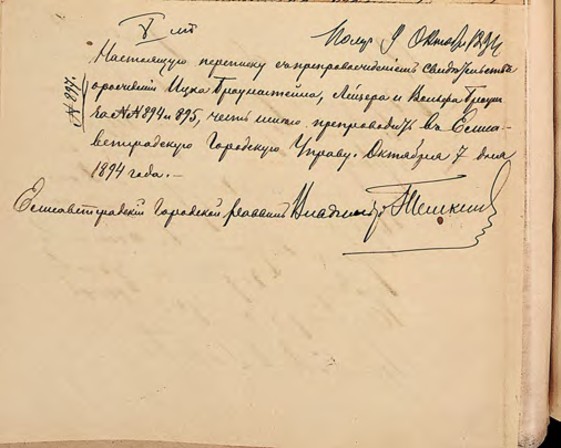 V ст
Получ. 9 Октяб. 1894
№ 897.
Настоящую переписку съ препровожденіемъ свидѣтельства
о рожденіи Ицка Броунштейна, Лейзера и Вольфа
за №№ 894 и 895, честь имѣю препроводить въ Елиса-
ветградскую Городскую Управу. Октября 7 дня
1894 года.—
Елисаветградскій Городской Раввинъ Владимиръ Темкинъ